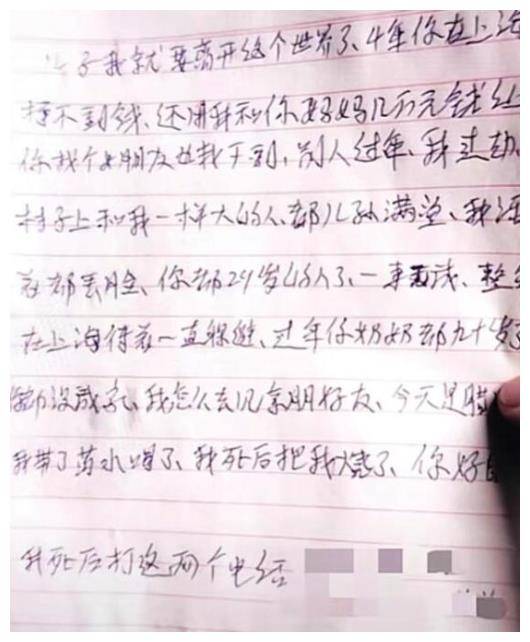 子我就要离开这个世界了、4年你在上海
挣不到钱、还用我和你妈妈几万元钱、让
你找个女朋友也找不到、别人过年、我过劫、
村子上和我一样大的人、都儿孙满堂、我还
在都丢脸、你都29岁的人了、一事无成、整
在上海待着一直躲避、过年你奶奶都九十岁了
都没成家、我怎么去见亲朋好友、今天是腊
我带了药水喝了、我死后把我烧了、你好自
我死后打这两个电话